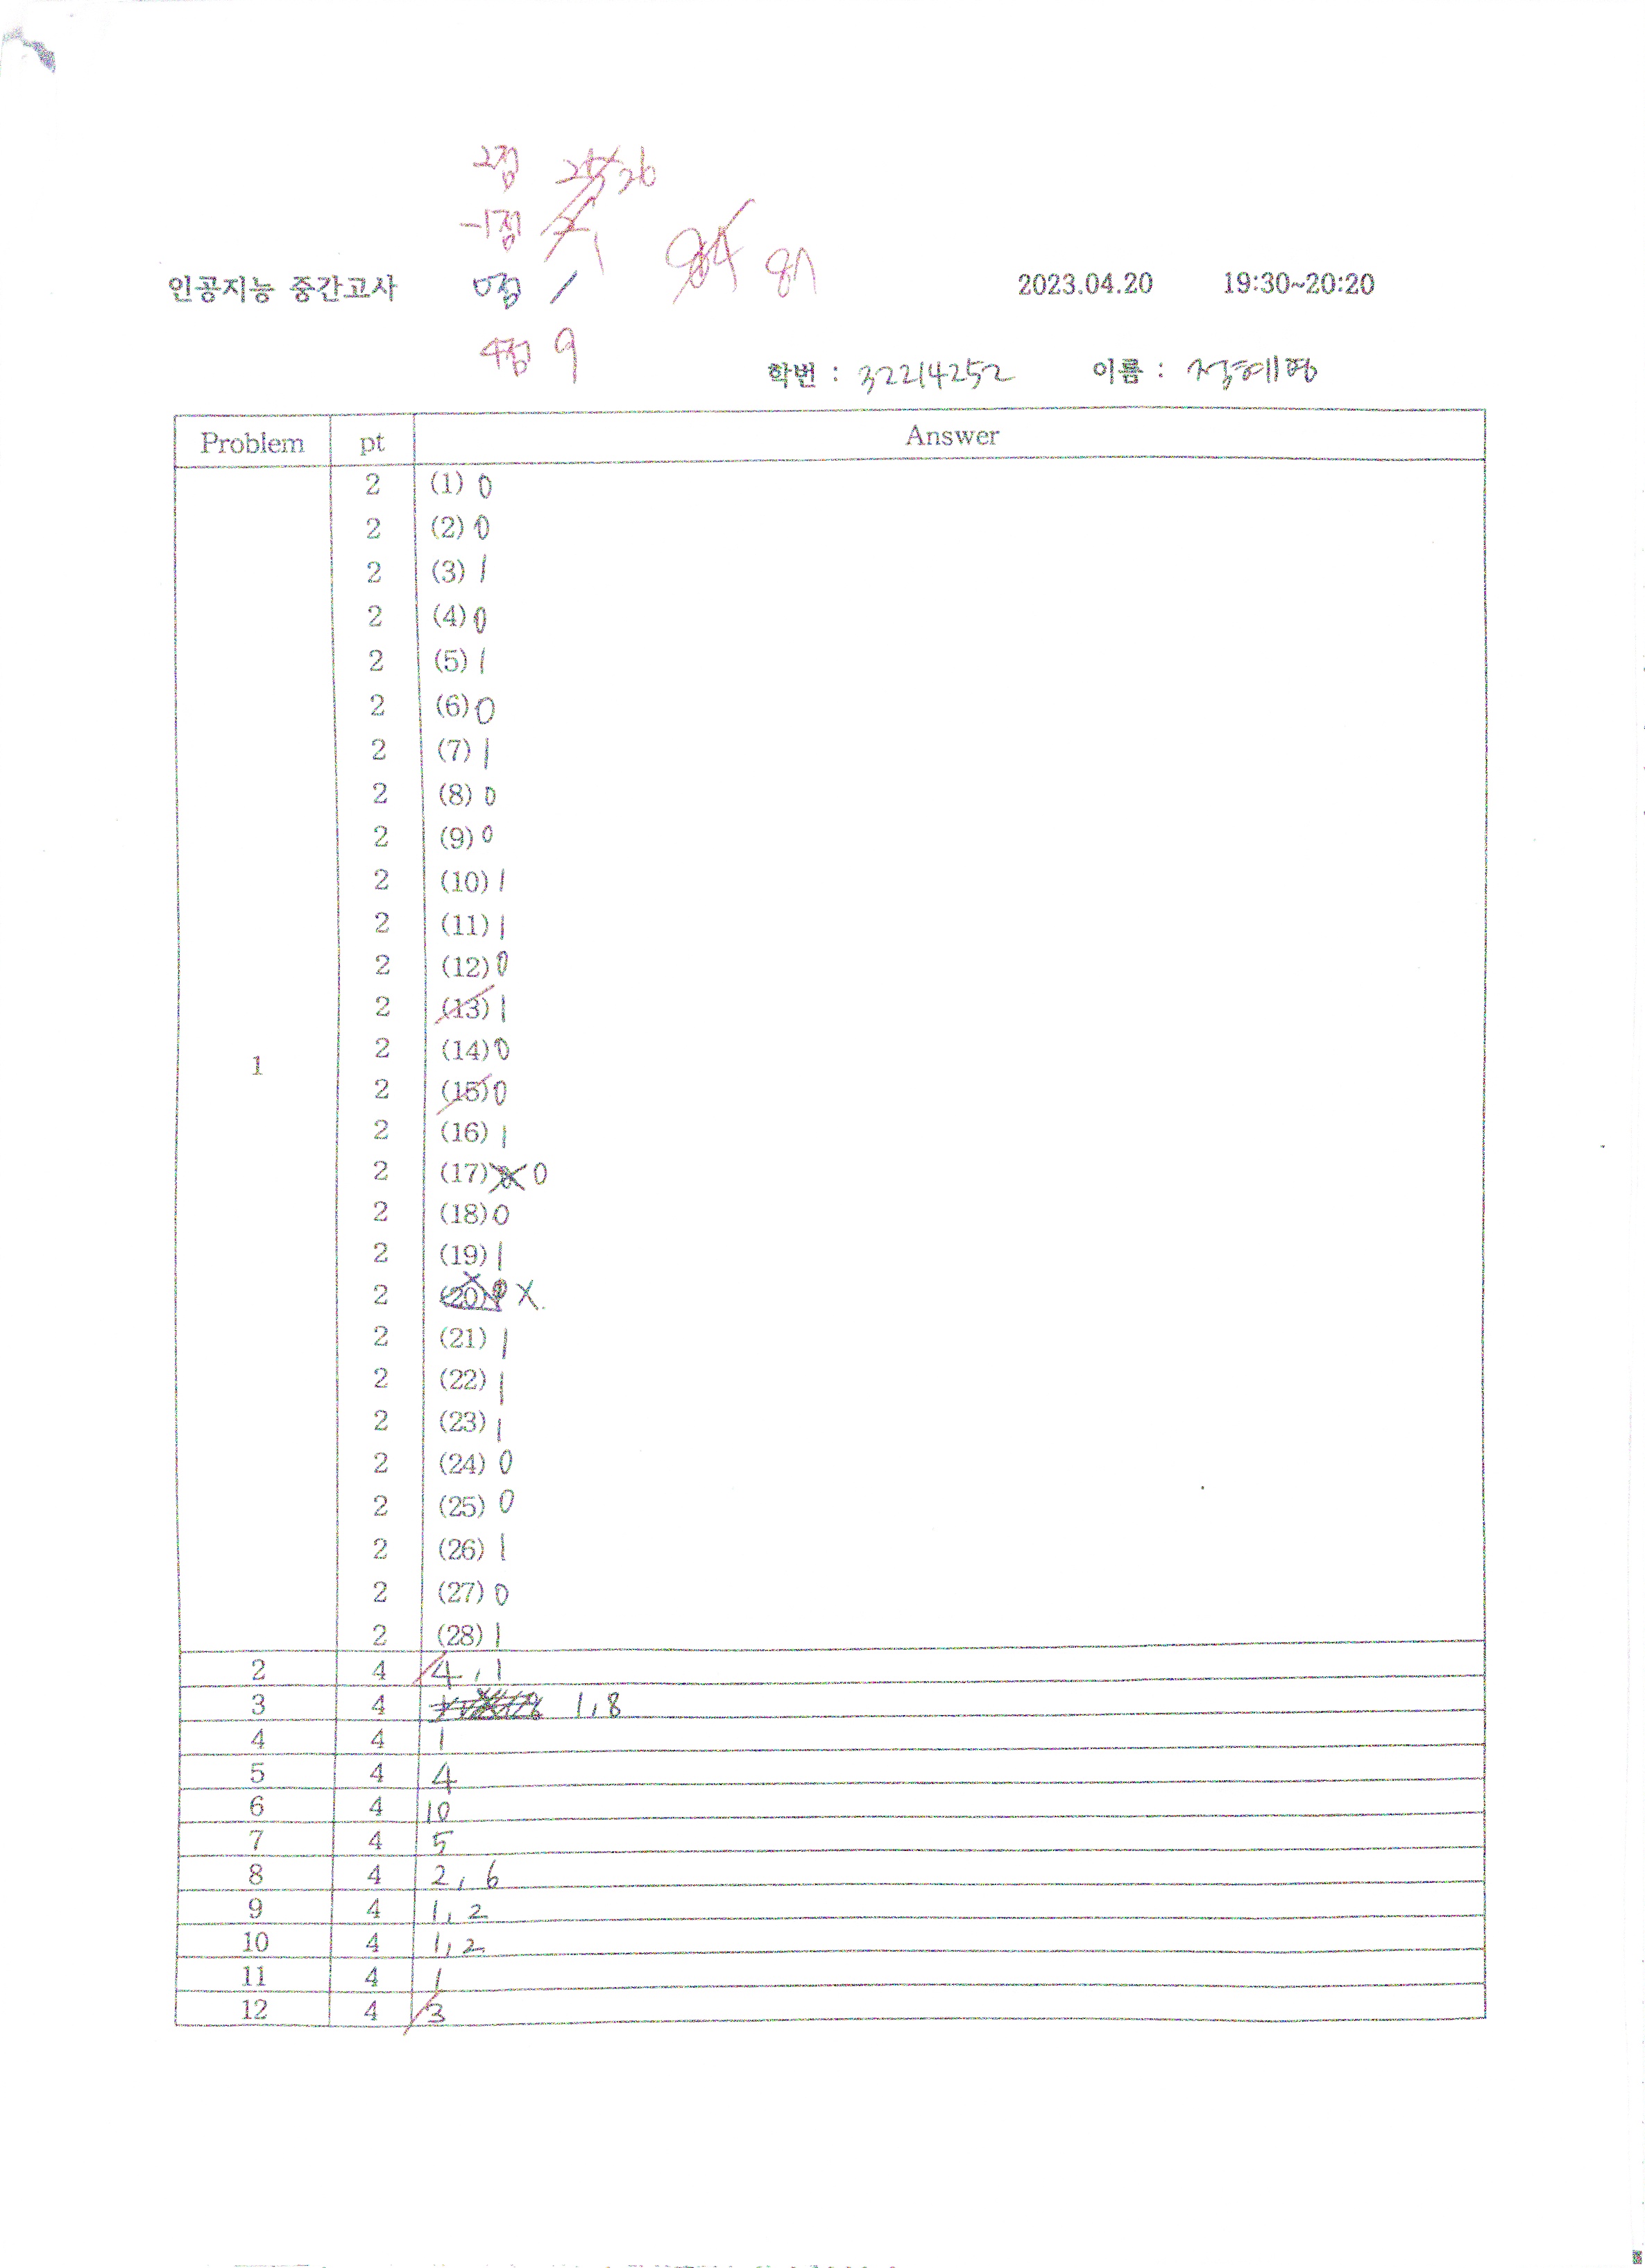 2점 26
-1점 1
인공지능 중간고사 0점 1 84 87 2023.04.20 19:30~20:20
4점 9
학번 : 32214252 이름 :
Problem pt Answer
2 (1) 0
2 (2) 0
2 (3) 1
2 (4) 0
2 (5) 1
2 (6) 0
2 (7) 1
2 (8) 0
2 (9) 0
2 (10) 1
2 (11) 1
2 (12) 0
2 (13) 1
2 (14) 0
1 2 (15) 0
2 (16) 1
2 (17) 0
2 (18) 0
2 (19) 1
2 (20) X
2 (21) 1
2 (22) 1
2 (23) 1
2 (24) 0
2 (25) 0
2 (26) 1
2 (27) 0
2 (28) 1
2 4 4, 1
3 4 1, 8
4 4 1
5 4 4
6 4 10
7 4 5
8 4 2, 6
9 4 1, 2
10 4 1, 2
11 4 1
12 4 3